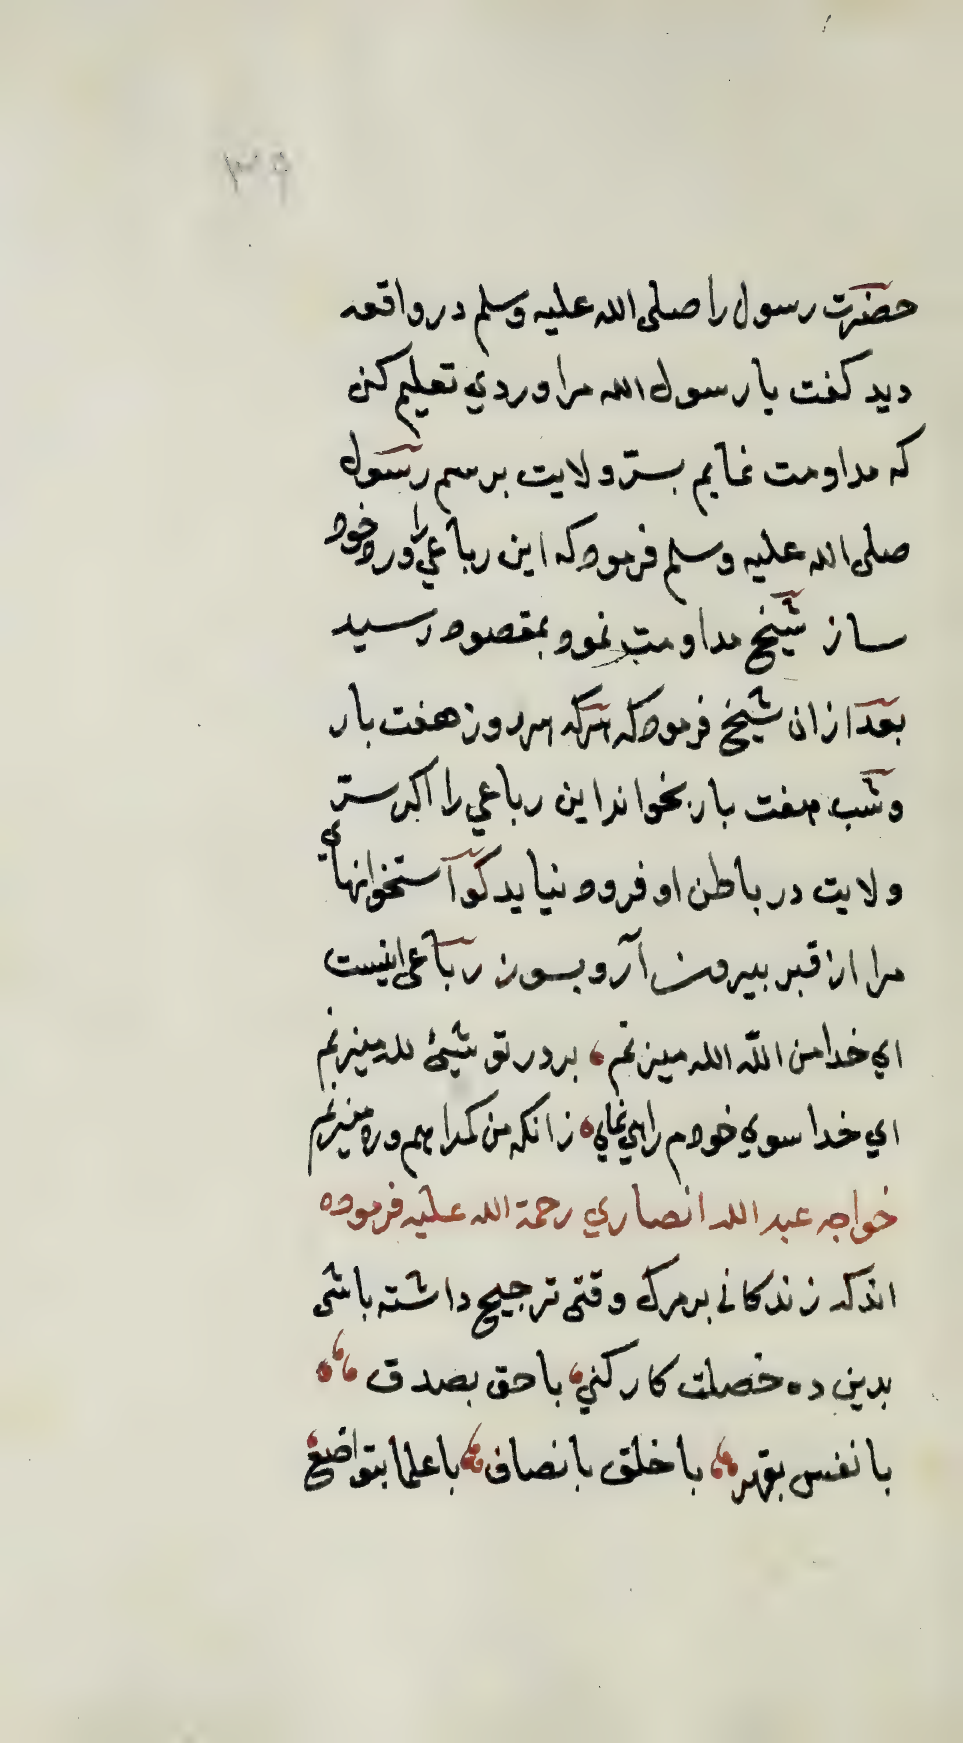 ٣٩
حضرت رسول را صلى الله عليه وسلم در واقعه
ديد كفت يا رسول الله مرا وردي تعليم كن
كه مداومت نمايم بسرّ ولايت برسم رسول
صلى الله عليه وسلم فرمود كه اين رباعي را ورد خود
ساز شيخ مداومت نمود بمقصود رسيد
بعد ازان شيخ فرمود كه هركه هر روز هفت بار
وشب هفت بار بخواند اين رباعي را اكر سرّ
ولايت در باطن او فرود نيايد كو آستخوانهاي
مرا از قبر بيرون آر وبسوز رباعي اينست
اي خدا من اللّه الله ميزنم بر در تو شيئ لله ميزنم
اي خدا سوي خودم راهي نماي زانكه من كمراهم وره ميزنم
خواجه عبد الله انصاري رحمة الله عليه فرموده
اندكه زندكاني بر مرك وقتى ترجيح داشته باشى
بدين ده خصلت كار كني با حق بصدق
با نفس بقهر با خلق بانصاف با علما بتواضع